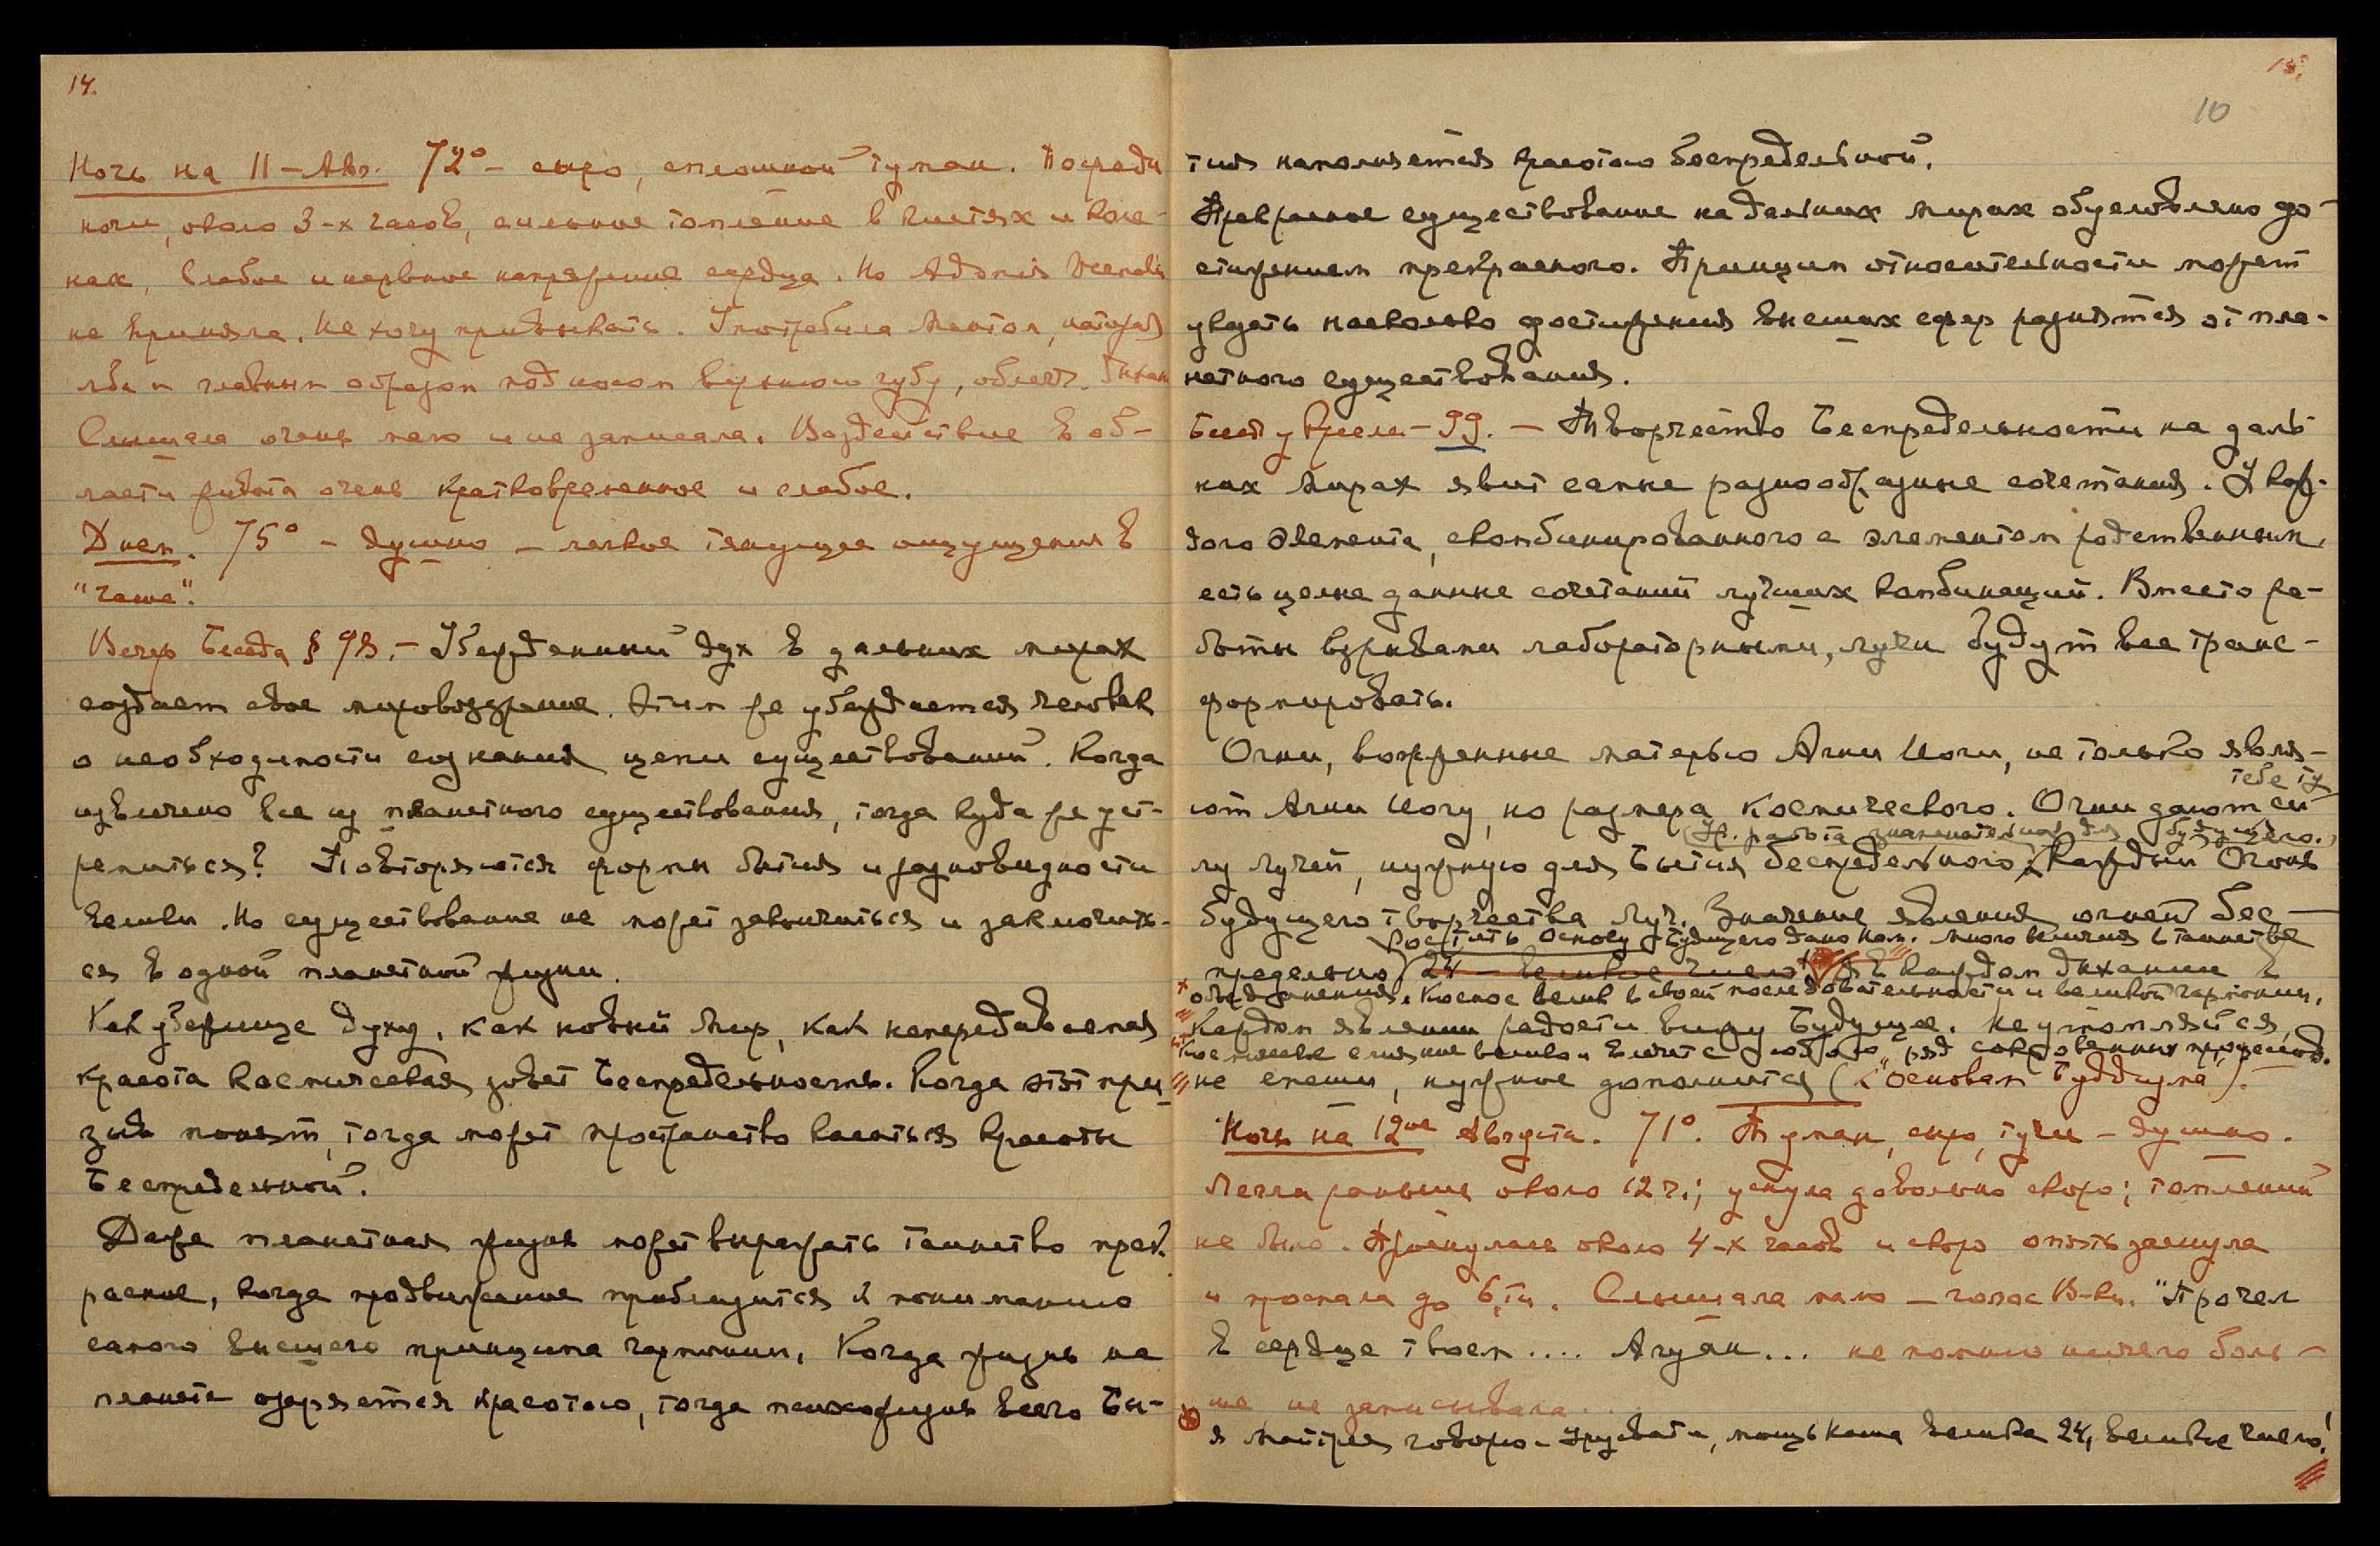 14.
Ночь на 11 – Авг. 72° – сыро, сплошной туман. Посреди
ночи, около 3-х часов, сильное топление в кистях и коле-
нах, слабое и нервное напряжение сердца. Но Adonis Vernalis
не приняла. Не хочу привыкать. Употребила Ментол, натирая
лба и главным образом под носом верхнюю губу, облегч. дыхан
Слышала очень мало и не записала. Воздействие в об-
ласти живота очень кратковременное и слабое.
Днем. 75° – душно – легкое тянущее ощущения в
"чаше".
Вечер Беседа § 98. – Убежденный дух в дальних мирах
создает свое мировоззрение. Этим же убеждается человек
о необходимости сознания цепи существований. Когда
извлечено все из планетного существования, тогда куда же уст-
ремиться? Повторяются формы бытия и разновидности
велики. Но существование не может закончиться и заключить-
ся в одной планетной жизни.
Как убежище духу, как новый Мир, как непередаваемая
красота космическая зовет Беспредельность. Когда этот при
зыв понят, тогда может пространство касаться красоты
Беспредельной.
Даже планетная жизнь может выражать таинство прек
расное, когда продвижение приблизится к пониманию
самого высшего принципа гармонии. Когда жизнь на
планете озаряется красотою, тогда психожизнь всего Бы-
15.
10
тия наполняется красотою беспредельной.
Прекрасное существование на дальних мирах обусловлено до-
стижением прекрасного. Принцип относительности может
указать насколько достижения высших сфер разнятся от пла-
нетного существования.
Беседу врем – 99. – Творчество Беспредельности на даль
них Мирах явит самые разнообразные сочетания. У каж-
дого Элемента, скомбинированного с элементом родственным,
есть целые данные сочетаний лучших комбинаций. Вместо ра-
боты взрывами лабораторными, лучи будут все транс-
формировать.
Огни, возжженные матерью Агни Йоги, не только явля-
тебе ту
ют Агни Йогу, но размера Космического. Огни дают си
работа знаменательная для будущего.
лу лучей, нужную для Бытия беспредельного. Каждый Огонь
будущего творчества луч. Значение явления огней бес-
Растить основу Будущего дано нам. Много величия в таинстве
предельно. 24 – великое число. В каждом дыхании в
объединения. Космос велик в своей последовательности и великой гармонии.
каждом явлении радости вижу Будущее. Не утомляйся,
Космическое слияние велико и влечет с собою ряд сокровенных процессов.
не спеши, нужное дополнится (к "Основам Буддизма").
Ночь на 12ое Августа. 71°. Туман, сыро, тучи – душно.
Легла раньше около 12 ч.; уснула довольно скоро; томлений
не было. Проснулась около 4-х часов и скоро опять заснула
и проспала до 6,ти. Слышала мало – голос В-ки. "Прочел
в сердце твоем .... Агуан... не помню ничего боль-
ше, не записывала...
Я Матрея говорю – Урусвати, мощь наша велика 24, великое число!